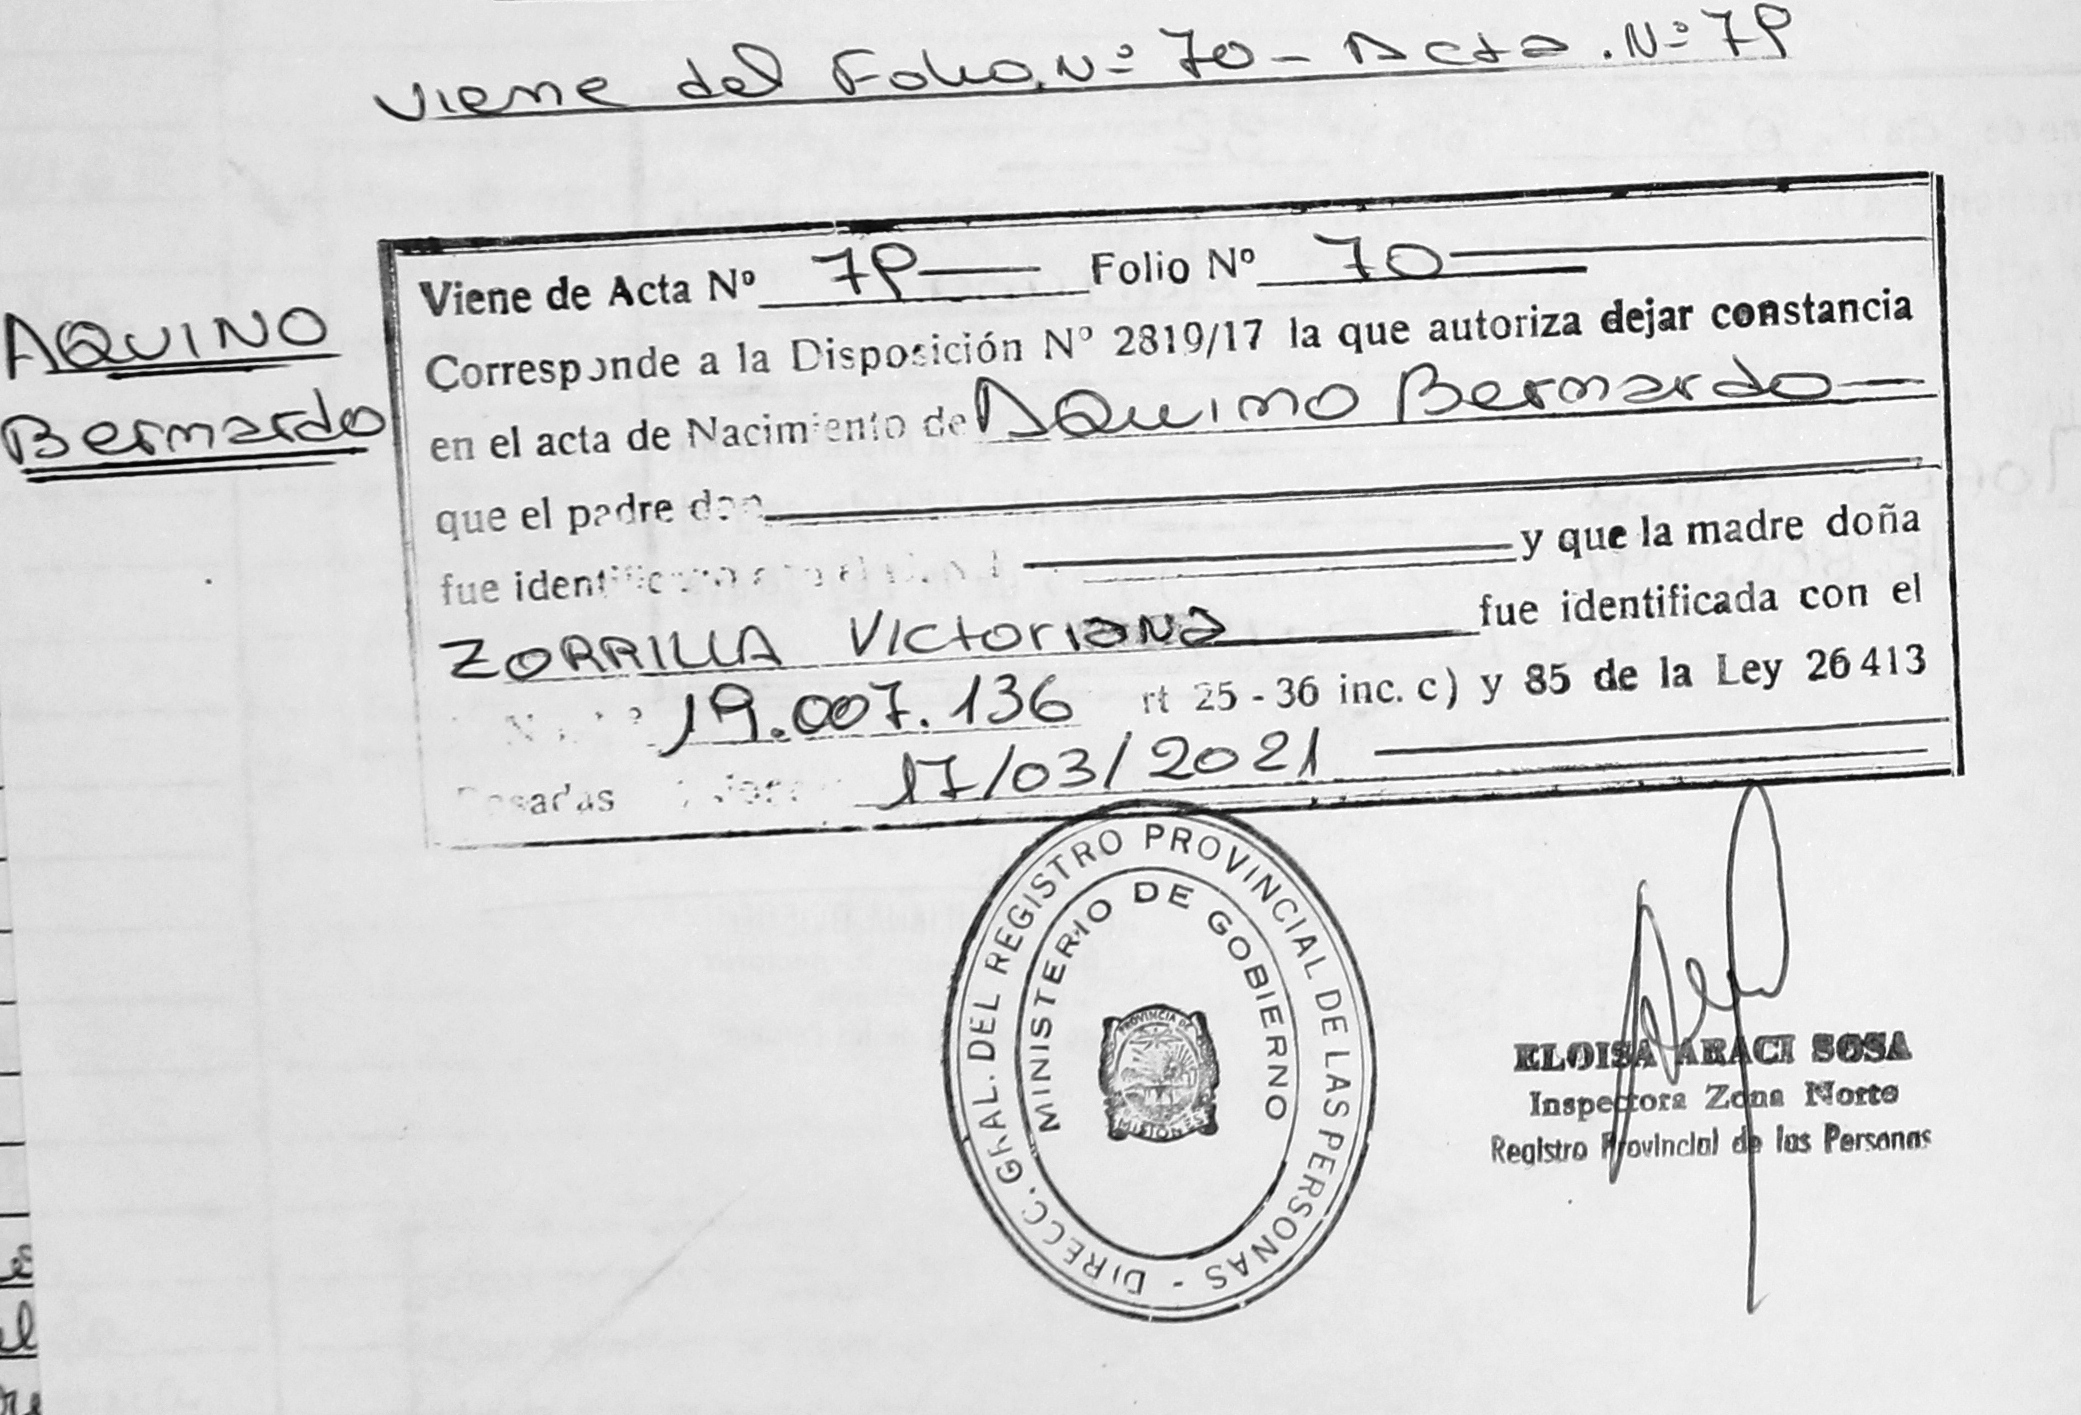 Viene del Folio Nº 70 - Acta Nº 79
AQUINO
Bernardo
Viene de Acta Nº 79 Folio Nº 70
Corresponde a la Disposición Nº 2819/17 la que autoriza dejar constancia
en el acta de Nacimiento de AQuino Bernardo
que el padre don
fue identificado y que la madre doña
ZORRILLA Victoriana fue identificada con el
19.007.136 rt 25 - 36 inc. c) y 85 de la Ley 26413
Posadas 17/03/2021
DIRECC. GRAL. DEL REGISTRO PROVINCIAL DE LAS PERSONAS -
MINISTERIO DE GOBIERNO
PROVINCIA DE
MISIONES
ELOISA ARACI SOSA
Inspectora Zona Norte
Registro Provincial de las Personas
el